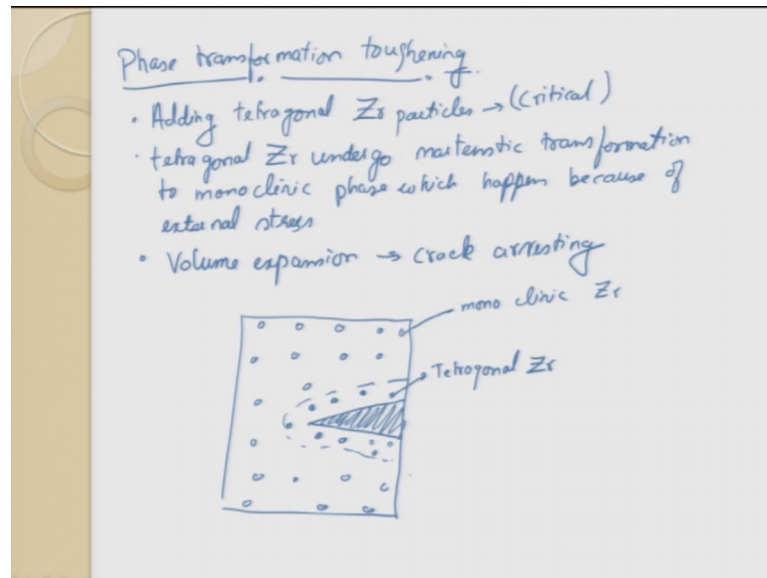 Phase transformation toughening.
• Adding tetragonal Zr particles → (critical)
• tetragonal Zr undergo martenstic transformation
to monoclinic phase which happen because of
external stress
• Volume expansion → crack arresting
mono clinic Zr
Tetragonal Zr